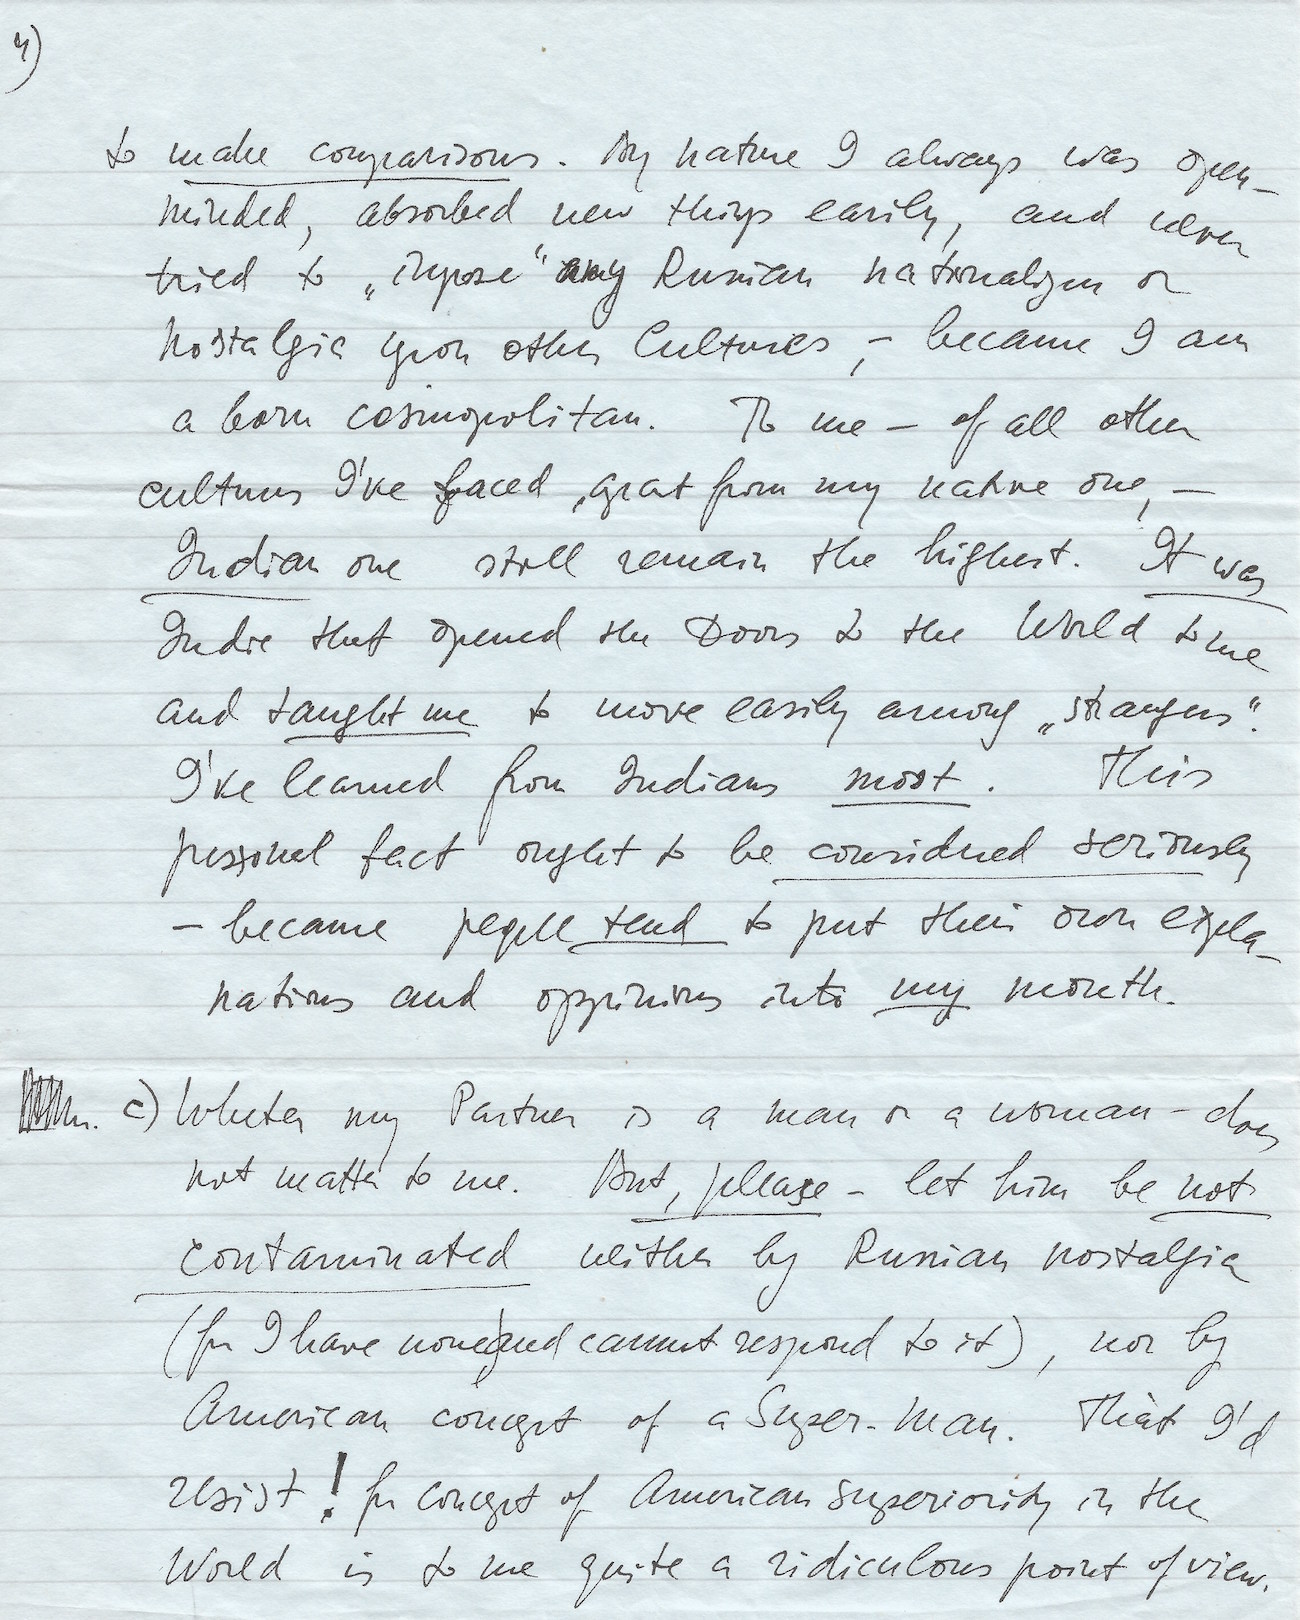 4)
to make comparisons. By nature I always was open-
minded, absorbed new things easily, and never
tried to „impose" any Russian nationalizm or
nostalgia upon other Cultures, – because I am
a born cosmopolitan. To me – of all other
cultures I've faced, apart from my native one, –
Indian one still remain the highest. It was
India that opened the Doors to the World to me
and taught me to move easily among „strangers".
I've learned from Indians most. This
personal fact ought to be considered seriously
– because people tend to put their own expla-
nations and oppinions into my mouth.
c) Wheter my Partner is a man or a woman – does
not matter to me. But, please – let him be not
contaminated neither by Russian nostalgia
(for I have none and cannot respond to it), nor by
American concept of a Super-Man. That I'd
resist! for concept of American Superiority in the
World is to me quite a ridiculous point of view.